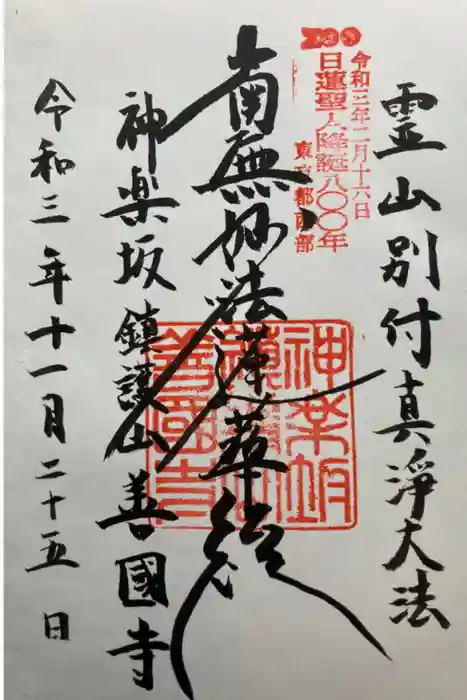 霊山別付真淨大法
令和三年二月十六日
日蓮聖人降誕八〇〇年
東京都西部
南無妙法蓮華経
神楽坂
鎮護山
善國寺
神楽坂鎮護山善國寺
令和三年十一月二十五日